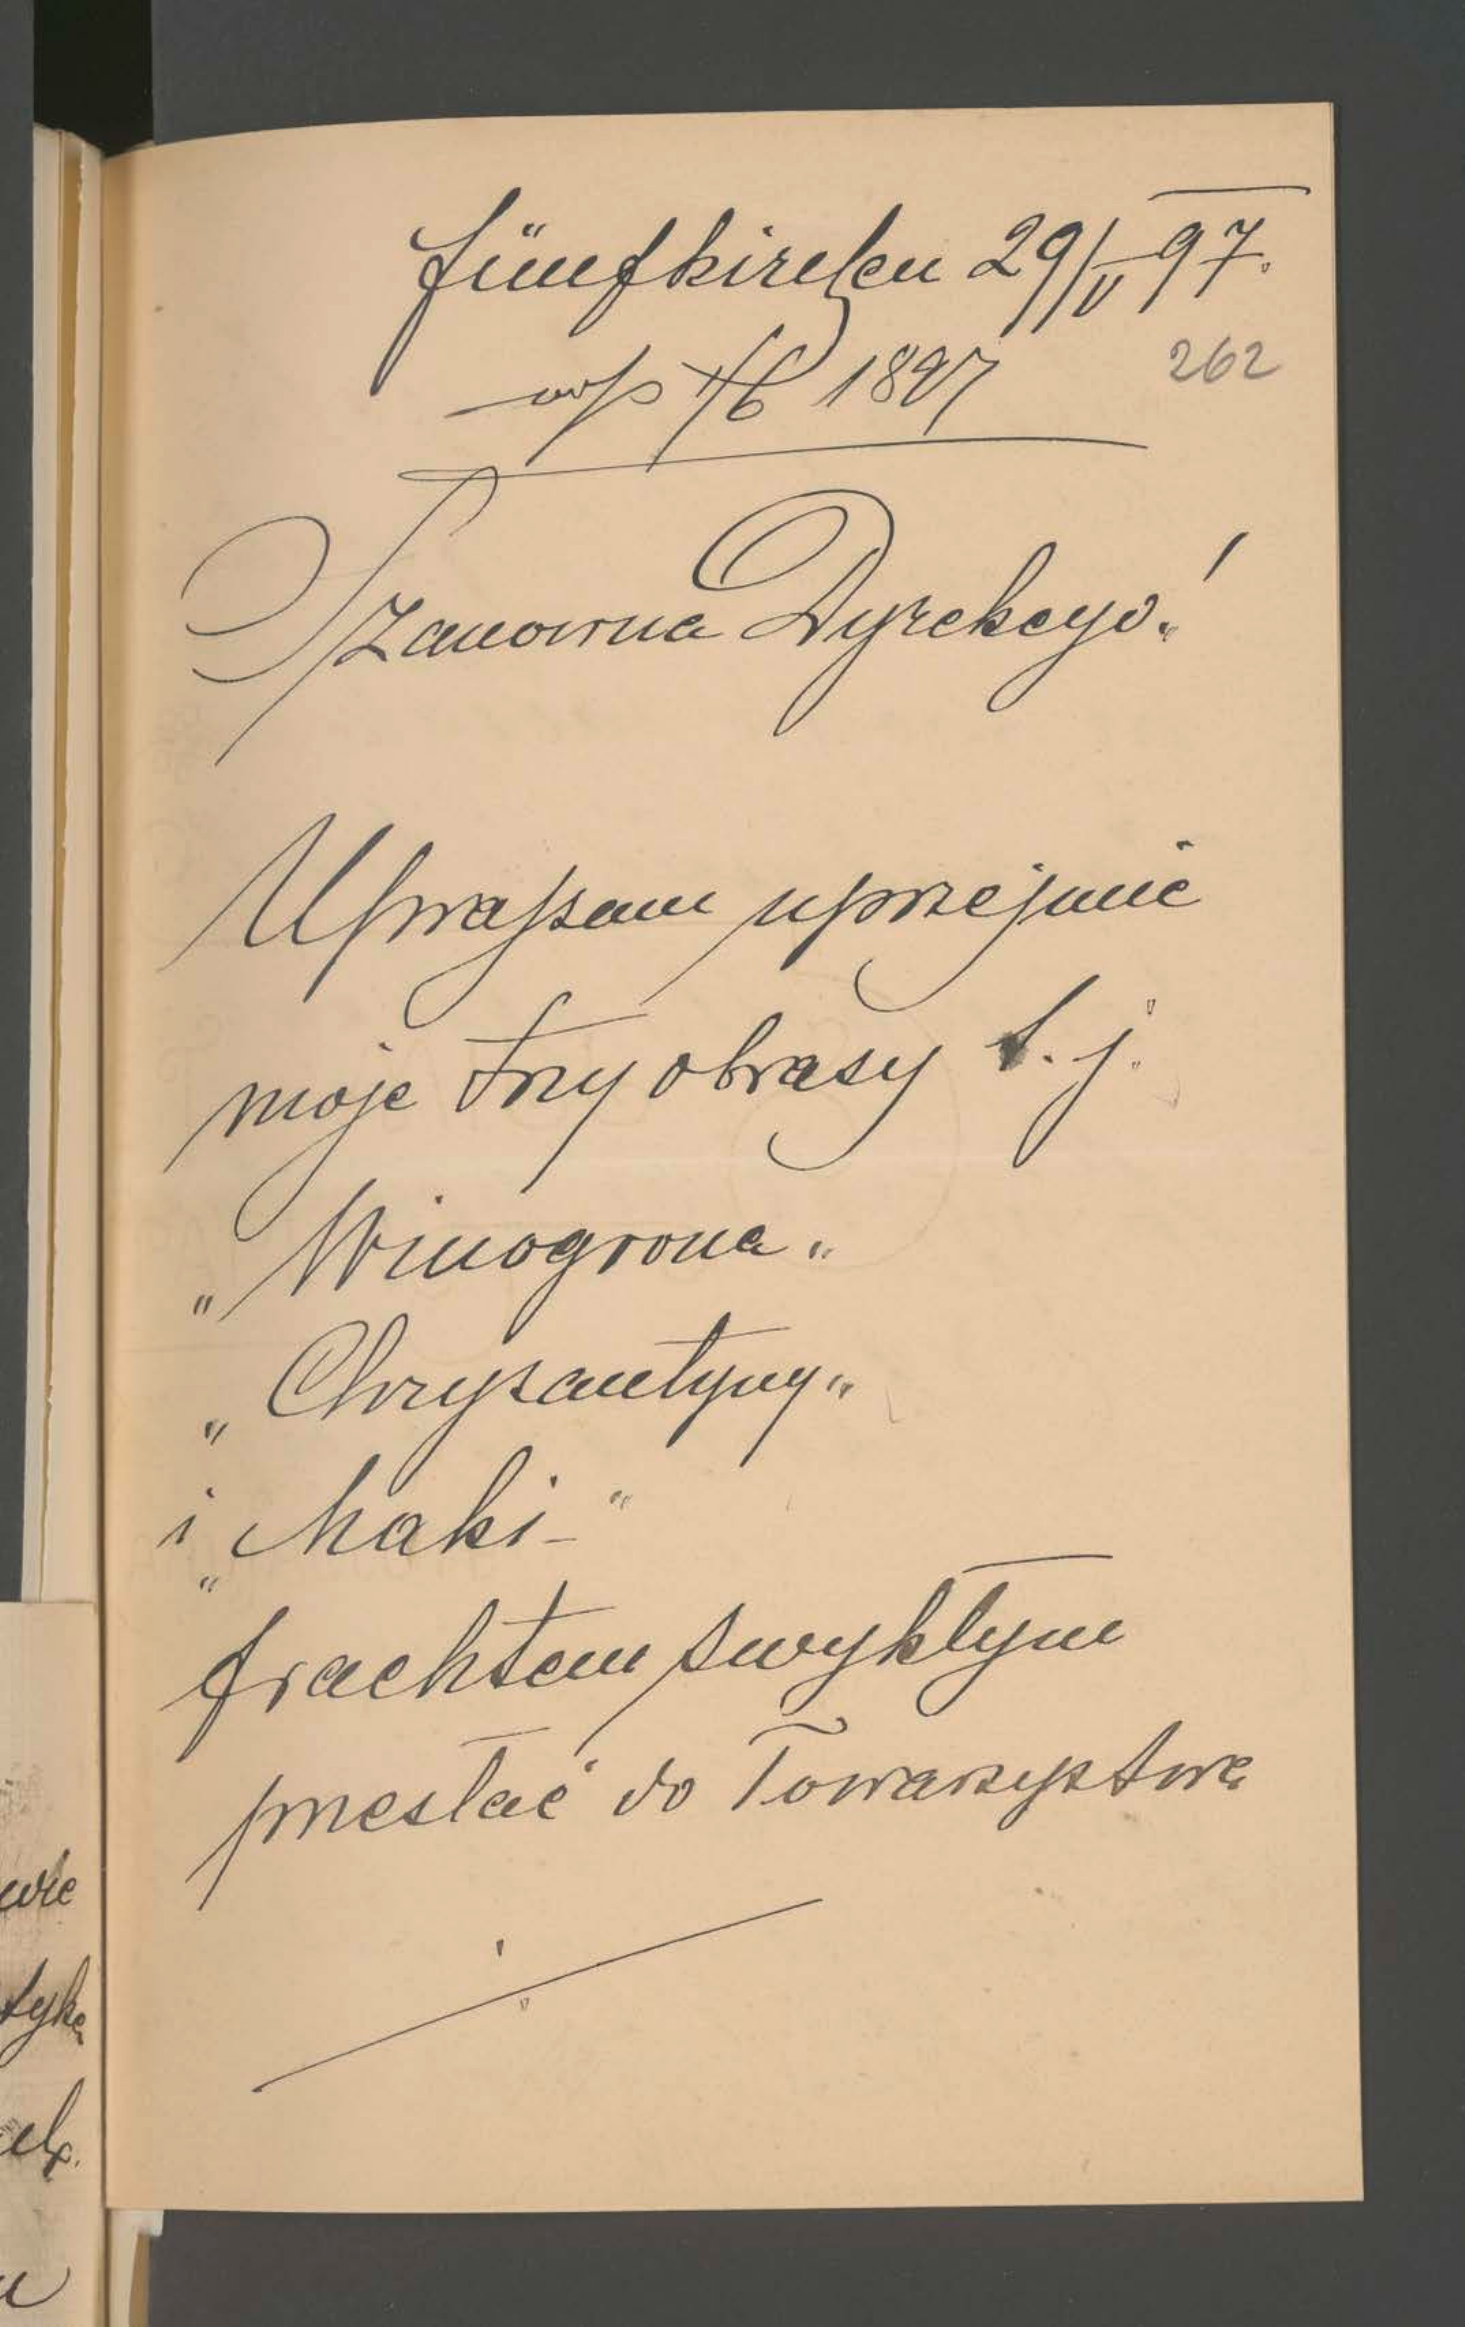 Fünfkirchen 29/V 97.
262
wp 1/6 1897
Szanowna Dyrekcyo!
Upraszam uprzejmie
moje trzy obrazy t. j.
„Winogrona"
„Chryzantymy"
i „Maki"
frachtem zwykłym
przesłać do Towarzystwa